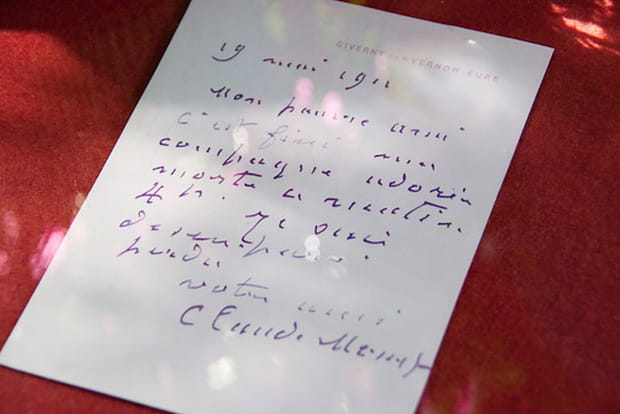 GIVERNY PAR VERNON EURE
19 mai 1911
Mon pauvre ami
c'est fini ma
compagne adorée
morte ce matin
4 h. Je suis
désemparé
perdu
votre ami
Claude Monet